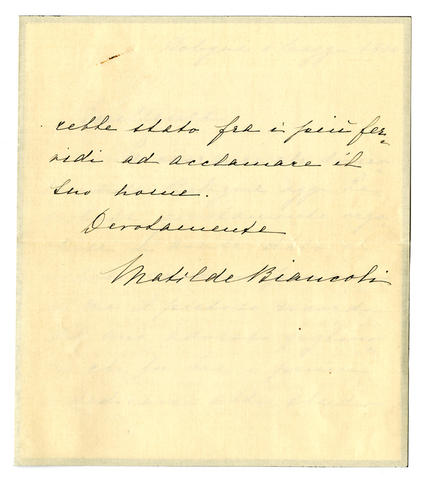 rebbe stato fra i più fer-
vidi ad acclamare il
suo nome.
Devotamente
Matilde Biancoli